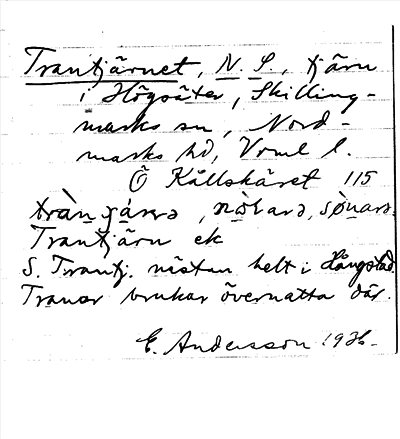 Trantjärnet, N. S., tjärn
i Högsäter, Skilling-
marks sn, Nord-
marks hd, Vrml l.
Ö Källskäret 115
Trantjärn ek
S. Trantj. nästan helt i
Tranor brukar övernatta där.
E. Andersson 1936.